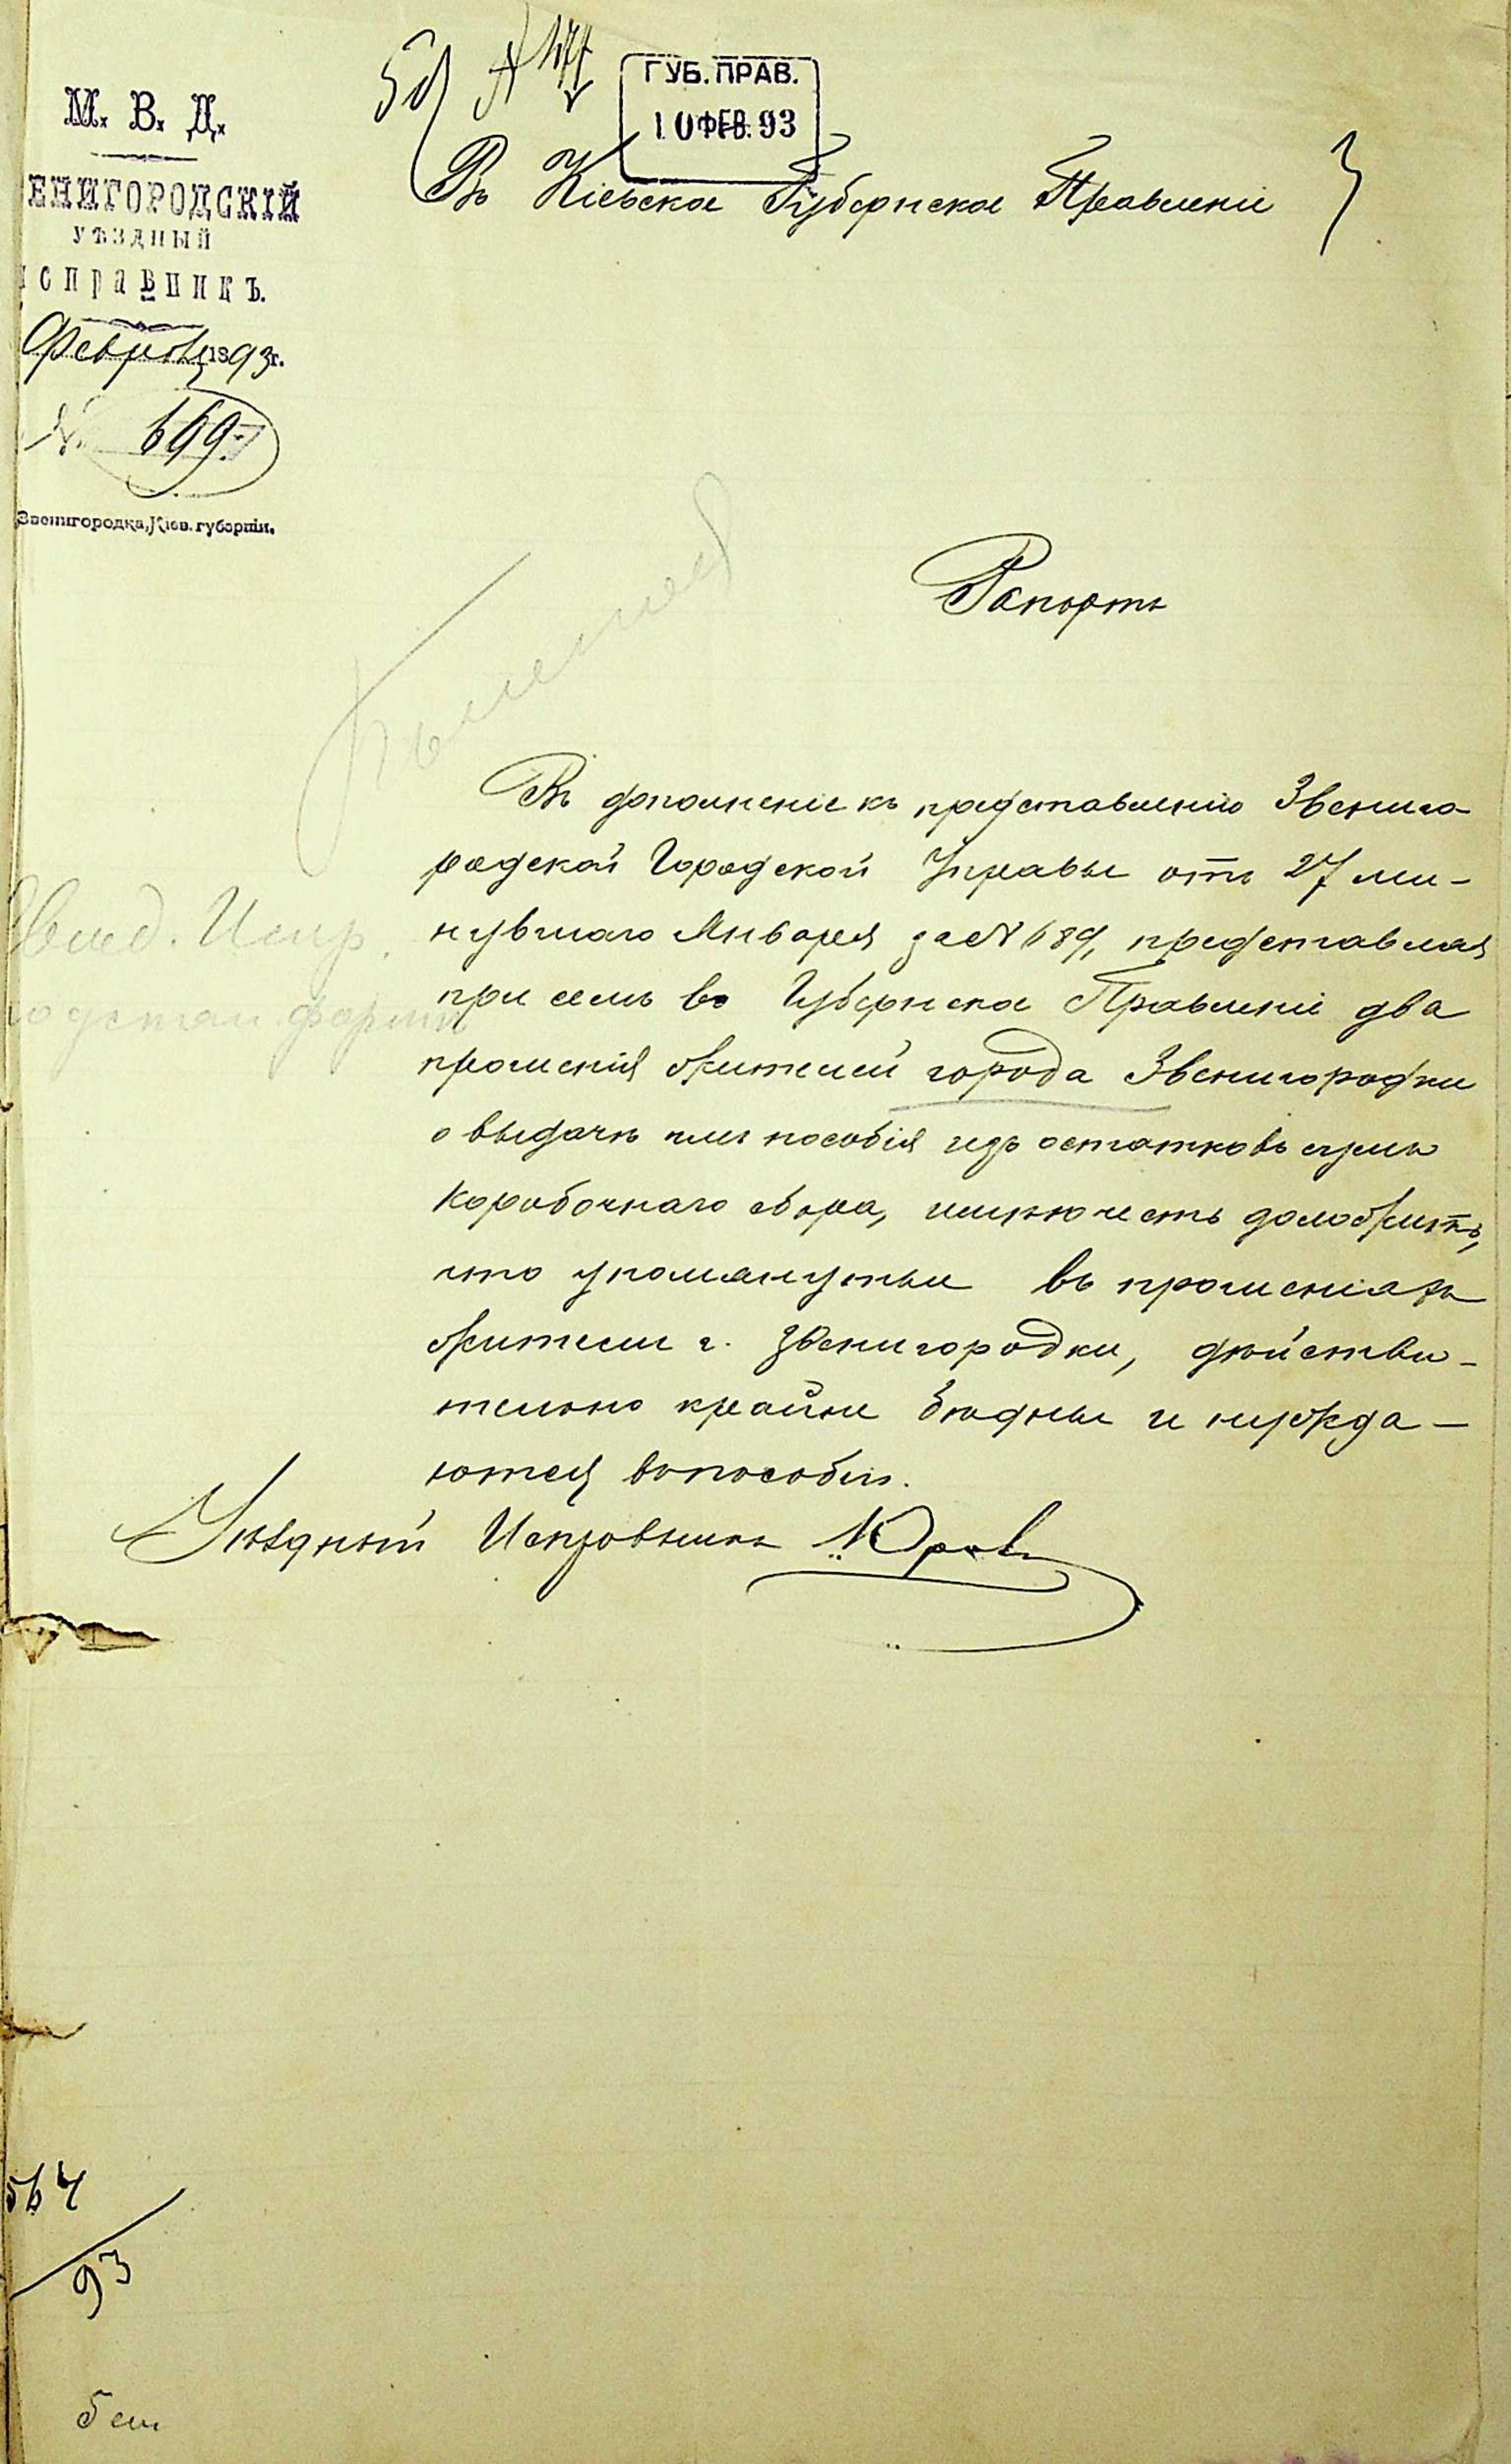 М. В. Д.
ЕНИГОРОДСКІЙ
УѢЗДНЫЙ
ИСПРАВНИКЪ.
Февраля 1893 г.
№ 669.
Звенигородка, Кіев. губерніи.
ГУБ. ПРАВ.
10 ФЕВ. 93
Въ Кіевское Губернское Правленіе
Рапортъ
Въ дополненіе къ представленію Звениго-
родской Городской Управы отъ 27 ми-
нувшаго Января за № 189, представляя
при семъ въ Губернское Правленіе два
прошенія жителей города Звенигородки
о выдачѣ имъ пособія изъ остатковъ суммъ
коробочнаго сбора, имѣю честь доложить,
что упомянутые въ прошеніяхъ
жители г. Звенигородки, дѣйстви-
тельно крайне бѣдные и нужда-
ются въ пособіи.
Уѣздный Исправникъ Юровъ
564
93